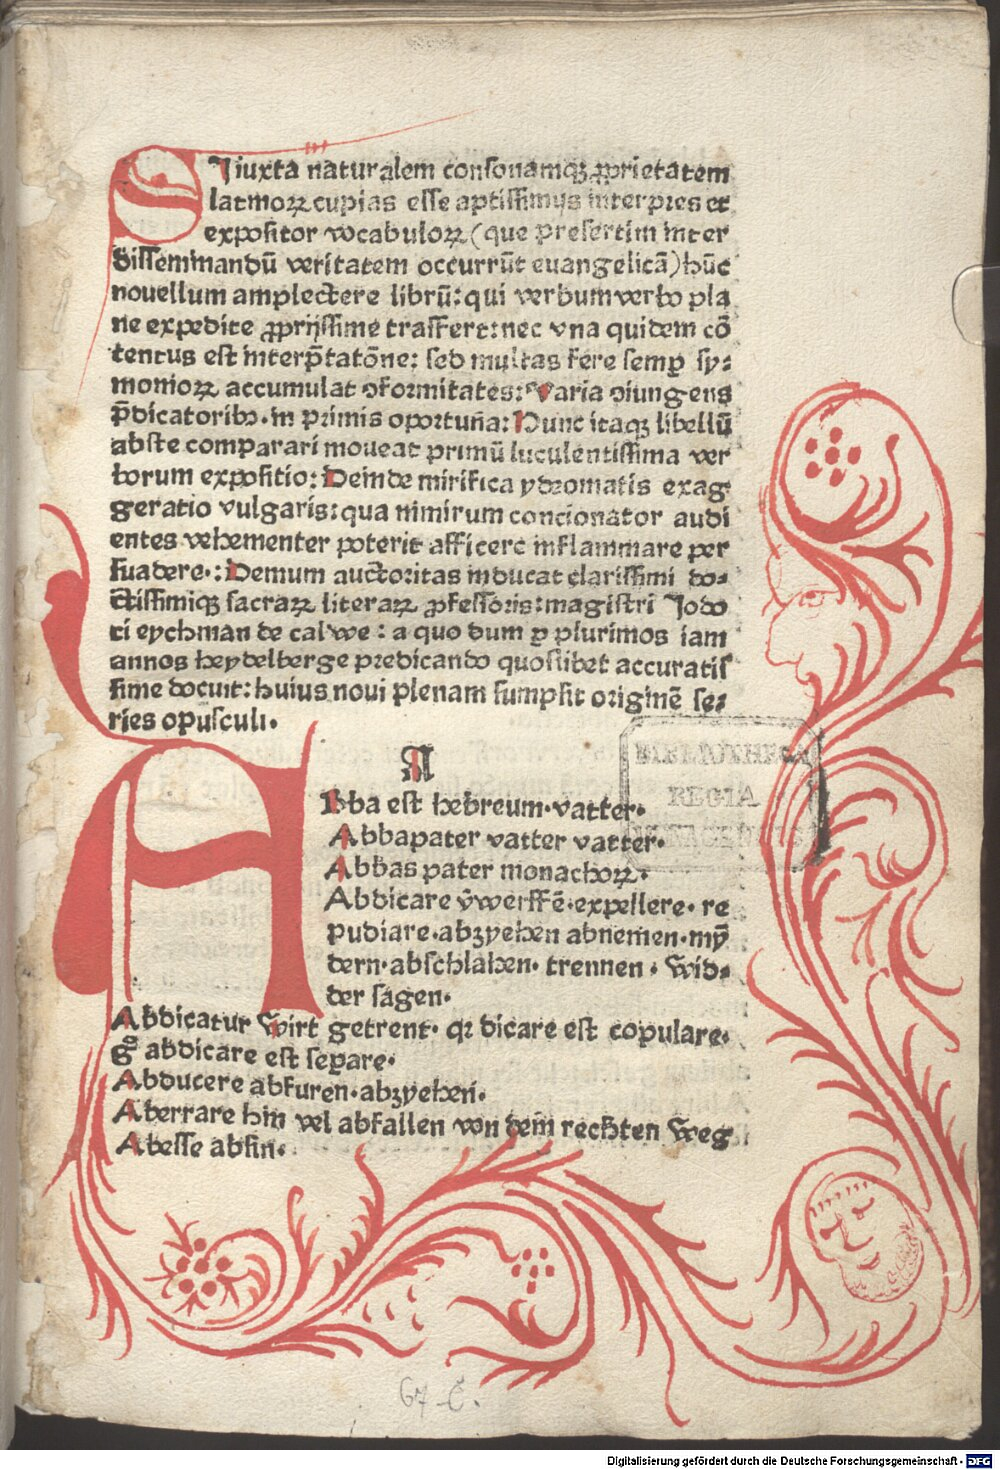 SI iuxta naturalem consonamqꝫ ꝓprietatem
latinoꝝ cupias esse aptissimus interpres et
expositor vocabuloꝝ (que presertim inter
disseminandū veritatem occurrūt euangelicā) hūc
nouellum amplectere librū: qui verbum verbo pla
ne expedite ꝓprijssime trāsfert: nec vna quidem cō
tentus est interp̄tatōne: sed multas fere semꝑ sy-
nonioꝝ accumulat ꝯformitates: Varia ꝯiungens
p̄dicatoribꝰ. in primis oportuna: Nunc itaqꝫ libellū
abste comparari moueat primū luculentissima ver
borum expositio: Deinde mirifica ydeomatis exag
geratio vulgaris: qua nimirum concionator audi
entes vehementer poterit afficere inflammare per
suadere.: Demum auctoritas inducat clarissimi do-
ctissimiqꝫ sacraꝝ literaꝝ ꝓfessoris: magistri Jodo
ci eychman de calwe: a quo dum ꝑ plurimos iam
annos heydelberge predicando quoslibet accuratis
sime docuit: huius noui plenam sumpsit originē se-
ries opusculi.
A
ABba est hebreum. vatter.
Abbapater vatter vatter.
Abbas pater monachoꝝ.
Abdicare v̄werffē. expellere. re
pudiare. abzyehen abnemen. my̅
dern. abschlahen. trennen. wid-
der sagen.
Abdicatur wirt getrent. qꝛ dicare est copulare.
gͦ abdicare est seꝑare.
Abducere abfuren. abzyehen.
Aberrare hin vel abfallen von dem rechten weg
Abesse absin.
BIBLIOTHECA
REGIA
MONACENSIS
67 C.
Digitalisierung gefördert durch die Deutsche Forschungsgemeinschaft - DFG